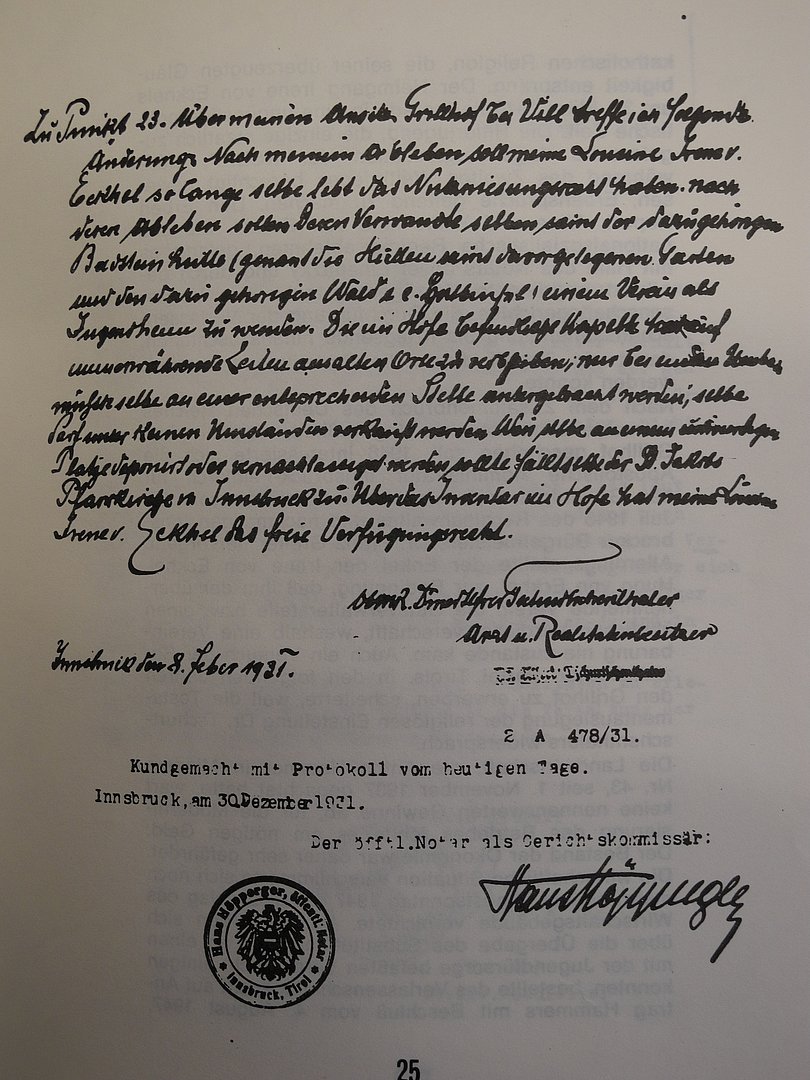 Zu Punkt 23. Über meinen Ansitz Grillhof bei Vill treffe ich folgende
Änderung. Nach meinem Ableben soll meine Cousine Irene v.
Eckhel so lange selbe lebt das Nutzniesungsrecht haben. nach
deren Ableben sollen deren Verwandte selben samt der dazugehörigen
Badstein hütte (genant die Hütten samt davorgelegenen Garten
und den dazu gehorigen Wald einem Verein als
Jugendheim zu wenden. Die im Hofe befindliche Kapelle hat auf
immerwährende Zeiten am alten Orte zu verbleiben; nur bei
müsste selbe an einer entsprechenden Stelle untergebracht werden; selbe
darf unter keinen Umständen verkauft werden Wen selbe an einem unwürdigen
Platze deponirt oder vernachlassigt werden sollte fällt selbe der St. Jakobs
Pfarrkirche in Innsbruck zu. Über das Inventar im Hofe hat meine Cousine
Irene v. Eckhel das freie Verfügungsrecht.
Arzt u. Realitätenbesitzer
Innsbruck den 8. Feber 1931.
2 A 478/31.
Kundgemacht mit Protokoll vom heutigen Tage.
Innsbruck, am 30 Dezember 1931.
Der öfftl. Notar als Gerichtskommissär:
Hans Höpperger
Hans Höpperger, öffentl. Notar
Innsbruck, Tirol
25